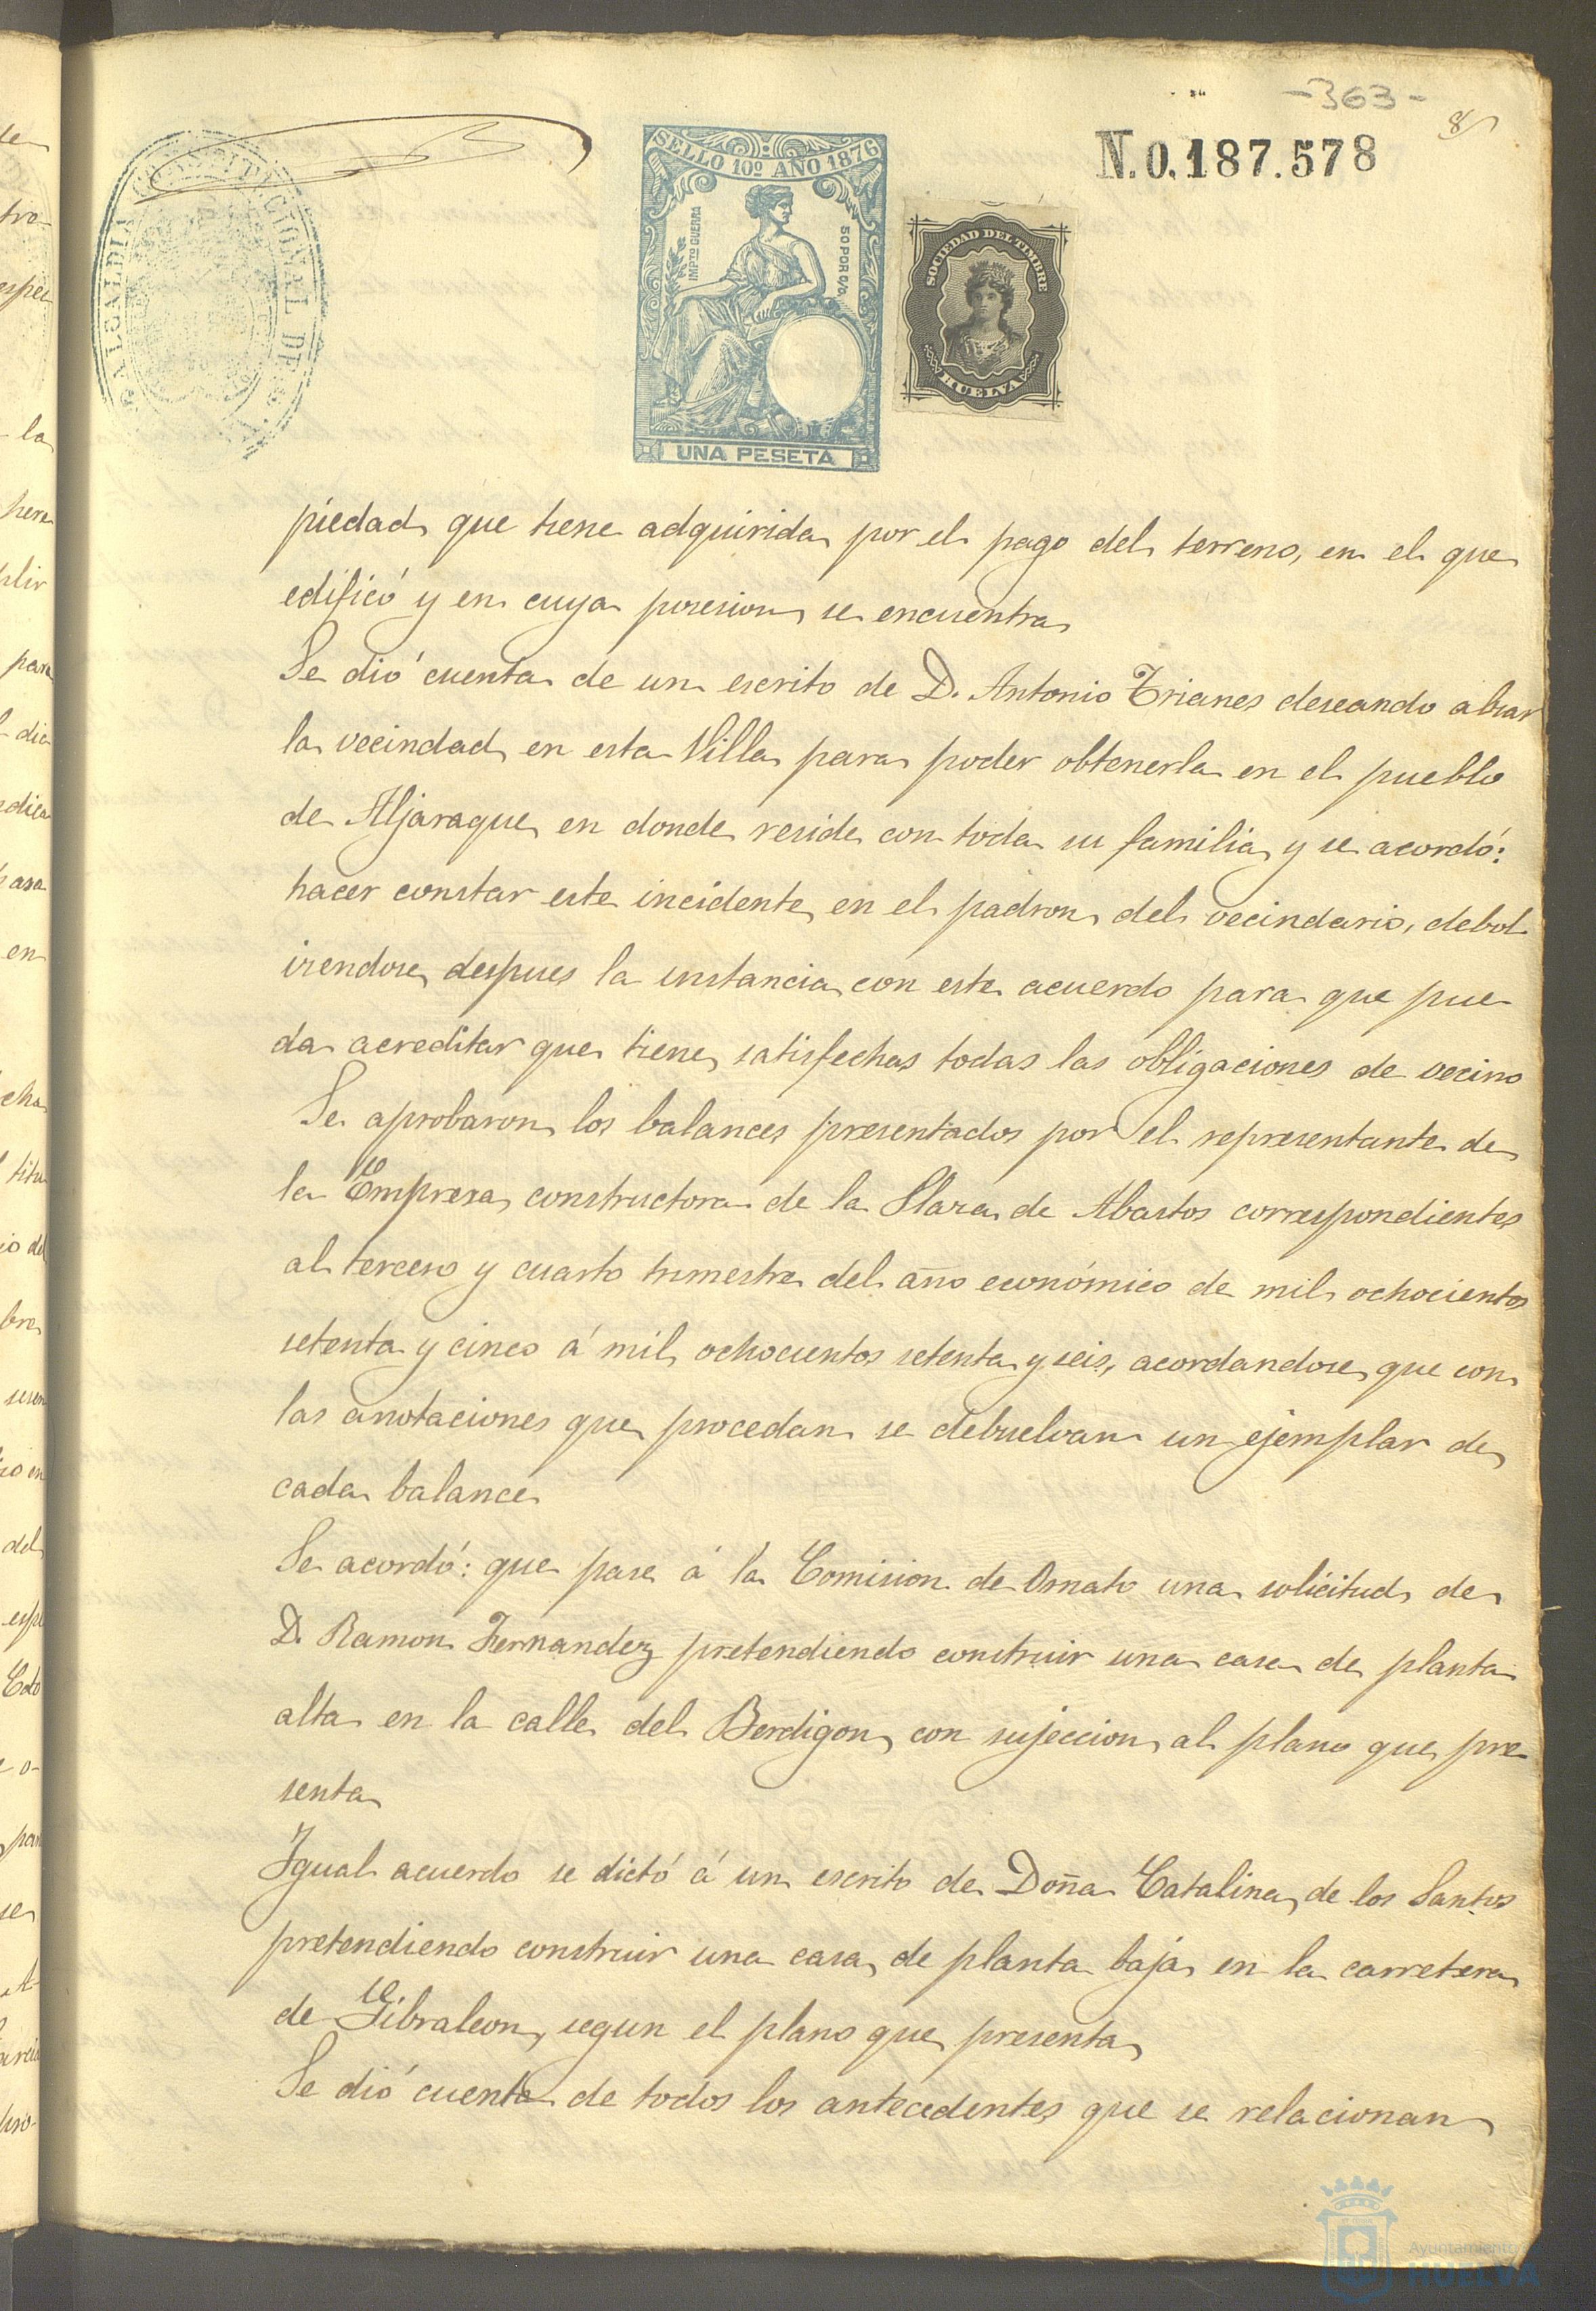 -363-
8
N.0.187.578
SELLO 10º AÑO 1876
IMPTO GUERRA
50 POR C/O.
UNA PESETA
SOCIEDAD DEL TIMBRE
HUELVA
ALCALDIA CONSTITUCIONAL DE
piedad que tiene adquirida por el pago del terreno, en el que
edificó y en cuya posesion se encuentra
Se dió cuenta de un escrito de D. Antonio Trianes deseando alzar
la vecindad en esta Villa para poder obtenerla en el pueblo
de Aljaraque en donde reside con toda su familia y se acordó:
hacer constar este incidente en el padron del vecindario, debol-
viendose despues la instancia con este acuerdo para que pue-
da acreditar que tiene satisfechas todas las obligaciones de vecino
Se aprobaron los balances presentados por el representante de
la Empresa constructora de la Plaza de Abastos correspondientes
al tercero y cuarto trimestre del año económico de mil ochocientos
setenta y cinco á mil ochocientos setenta y seis, acordandose que con
las anotaciones que procedan se debuelvan un ejemplar de
cada balance
Se acordó: que pase á la Comision de Ornato una solicitud de
D. Ramon Fernandez pretendiendo construir una casa de planta
alta en la calle del Berdigon con sujeccion al plano que pre-
senta
Igual acuerdo se dictó á un escrito de Doña Catalina de los Santos
pretendiendo construir una casa de planta baja en la carretera
de Gibraleon, segun el plano que presenta
Se dió cuenta de todos los antecedentes que se relacionan
Ayuntamiento
HUELVA